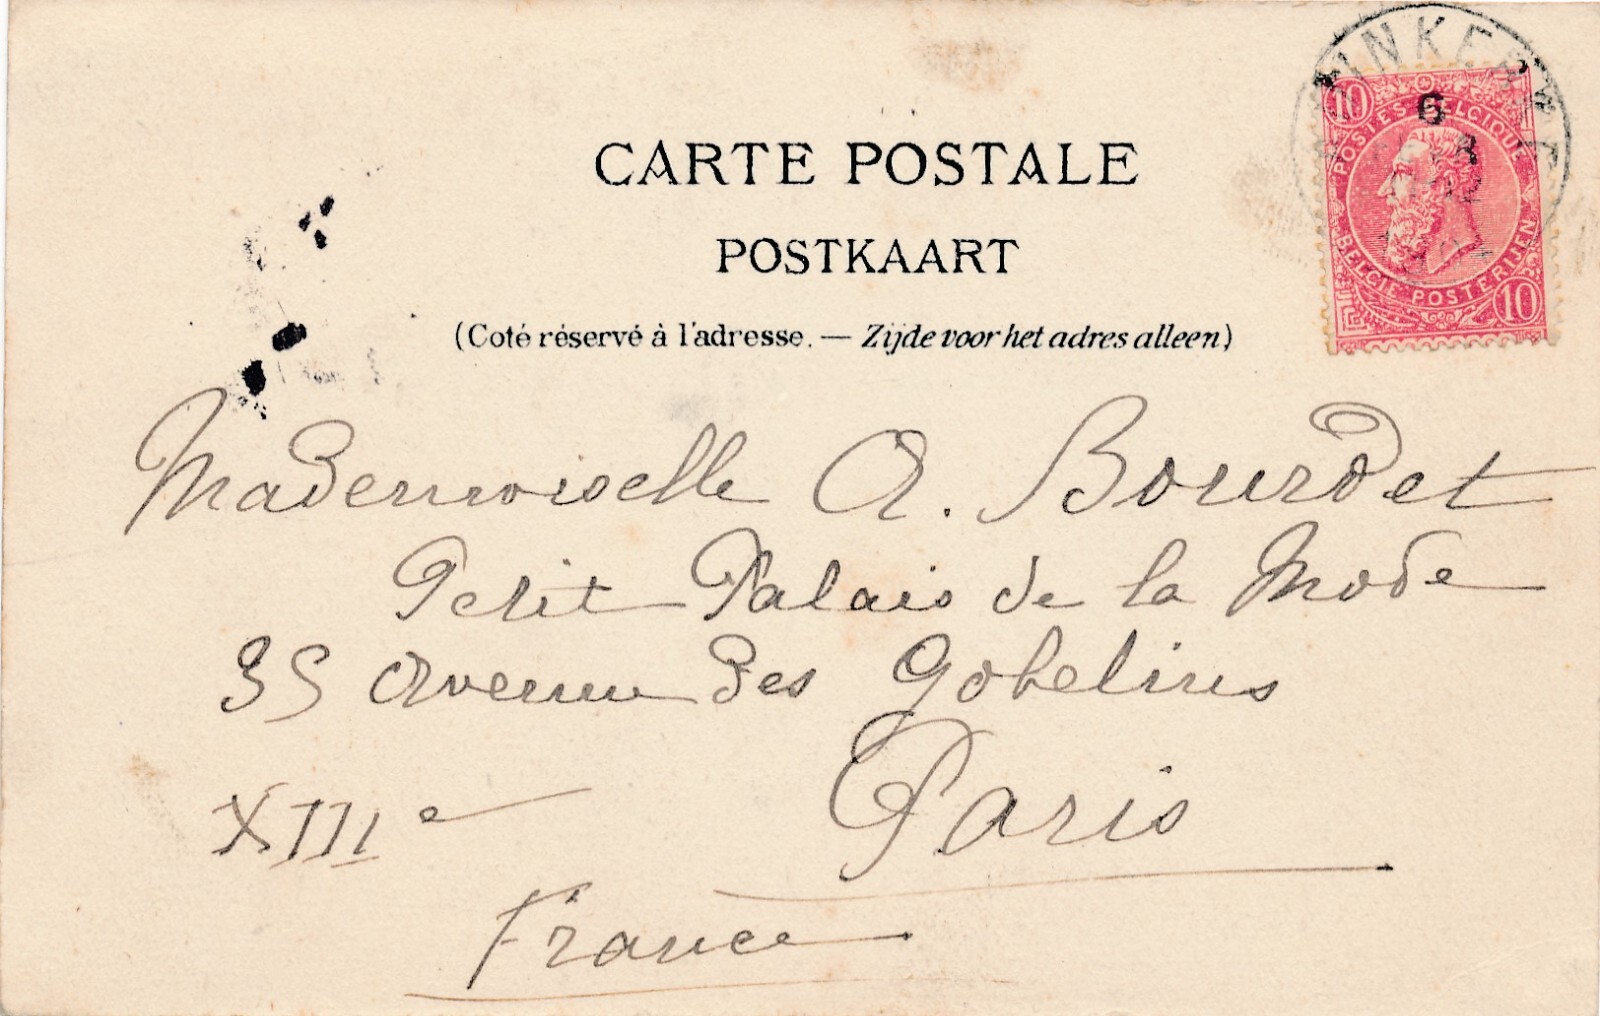 CARTE POSTALE
POSTKAART
(Coté réservé à l'adresse. — Zijde voor het adres alleen)
10
POSTES BELGIQUE
BELGIE POSTERIJEN
10
6
Mademoiselle A. Bourdet
Petit Palais de la Mode
35 Avenue des Gobelins
Paris
XIIIe
France